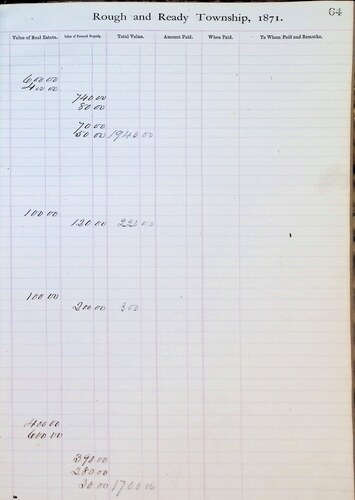 64
Rough and Ready Township, 1871.
Value of Real Estate. Value of Personal Property. Total Value. Amount Paid. When Paid. To Whom Paid and Remarks.
600 00
400 00
740 00
50 00
70 00
80 00 1940 00
100 00
120 00 220 00
100 00
200 00 300
400 00
600 00
390 00
280 00
30 00 1700 00